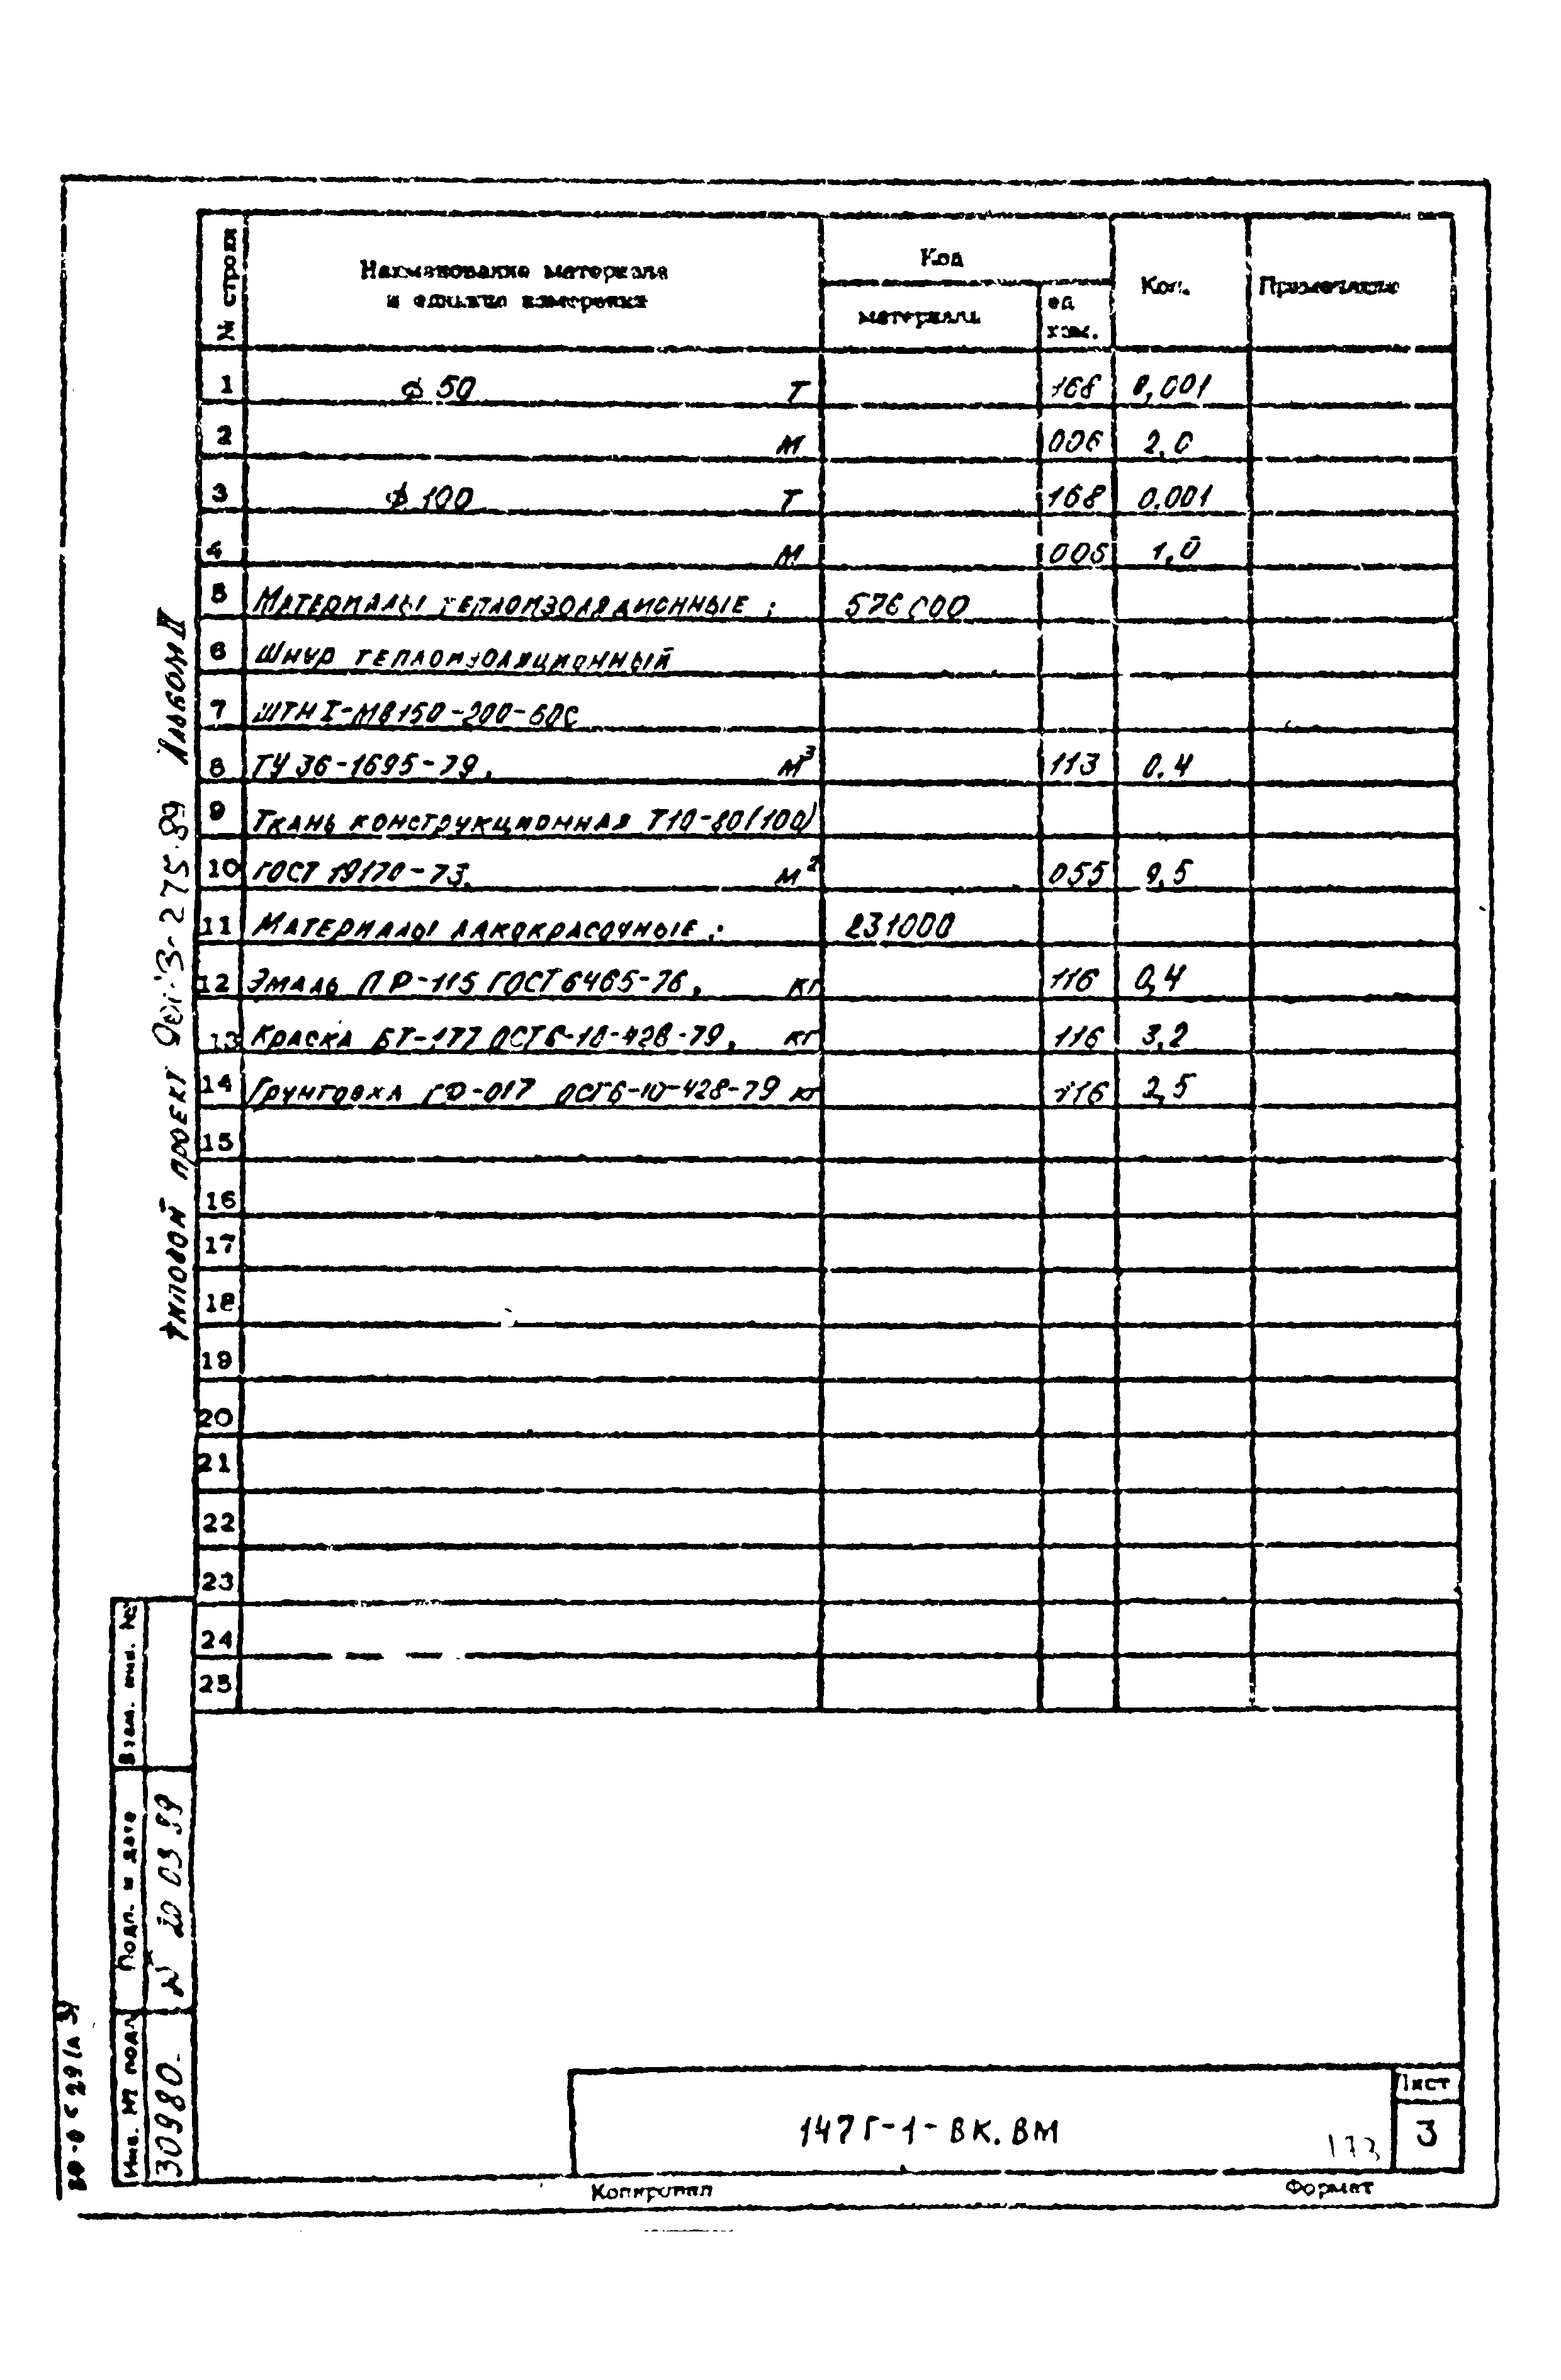 № строки
Наименование материала
и единица измерения
Код
материала
ед
изм.
Кол.
Примечание
1 ф 50 Т 168 0,001
2 М 006 2,0
3 ф 100 Т 168 0.001
4 М 006 1,0
5 Материалы теплоизоляционные : 576000
6 Шнур теплоизоляционный
7 ШТН I-МВ150-200-60с
8 ТУ 36-1695-79, м³ 113 0.4
9 Ткань конструкционная Т10-80(100)
10 ГОСТ 19170-73, м² 055 9,5
11 Материалы лакокрасочные : 231000
12 Эмаль ПР-115 ГОСТ 6465-76, кг 116 0,4
13 Краска БТ-177 ОСТ6-10-428-79, кг 116 3,2
14 Грунтовка ГФ-017 ОСТ6-10-428-79 кг 116 2,5
15
16
17
18
19
20
21
22
23
24
25
Типовой проект 275.89 Альбом II
Взам. инв. №
Подп. и дата
20 03 89
Инв. № подл
30980
147Г-1-ВК.ВМ
173
Лист
3
Копировал
Формат